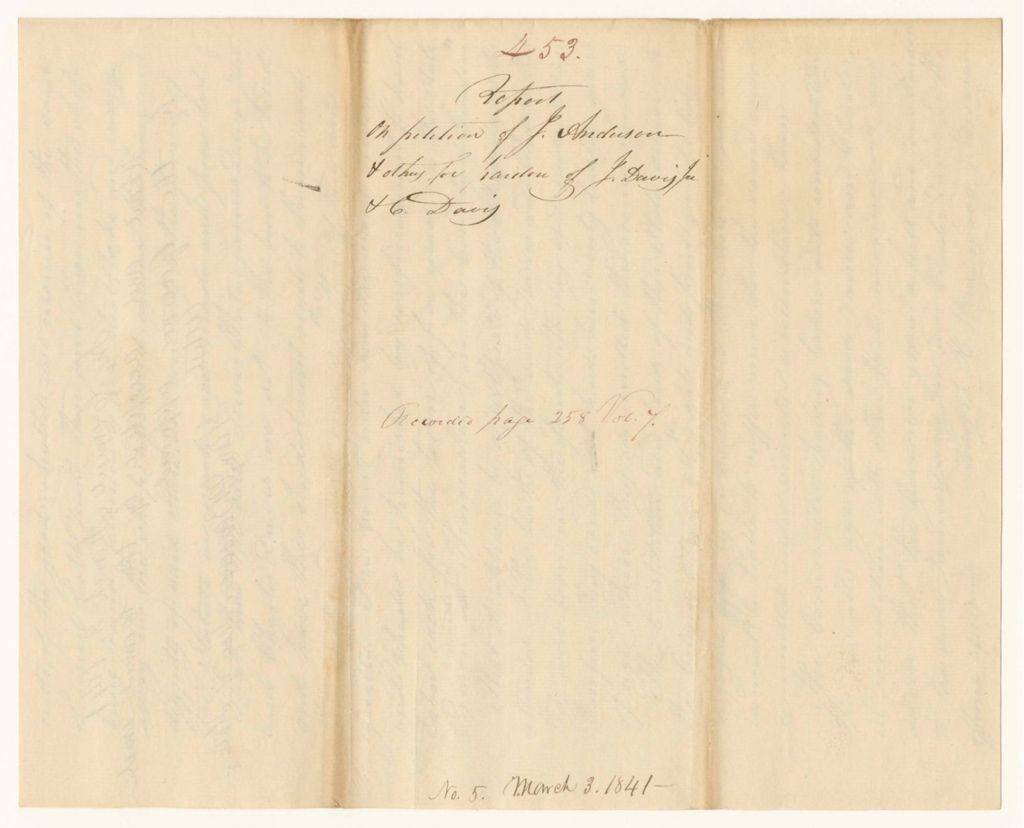 453.
Report
On petition of J. Anderson
& others for pardon of J. Davis Jr
& C. Davis
Recorded page 258 Vol. 7.
No. 5. March 3. 1841—